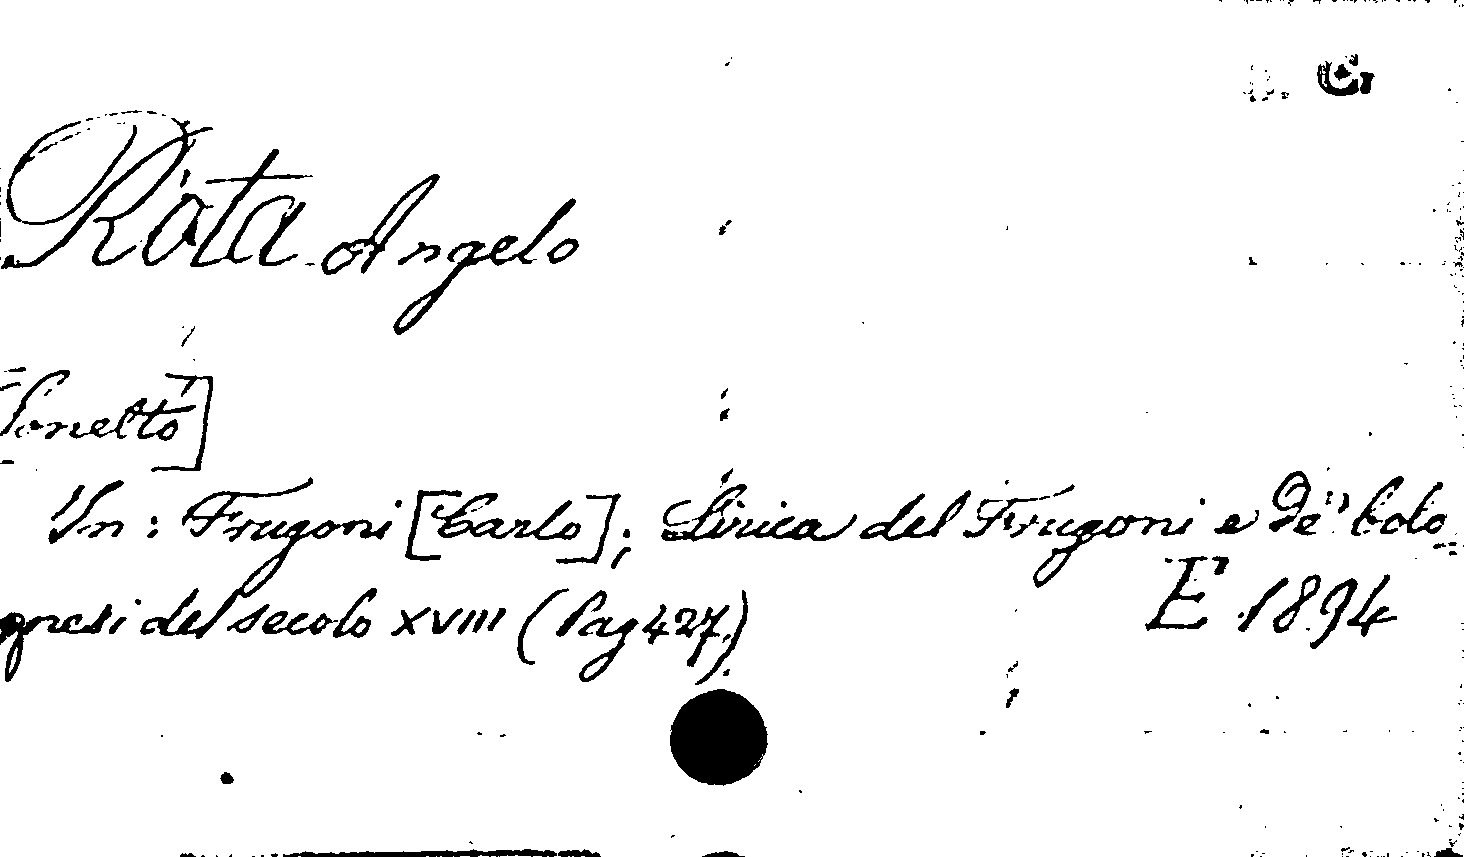 B. G.
Rota Angelo
[Sonetto]
In: Frugoni [Carlo]; Lirica del Frugoni e de' bolo
gnesi del secolo XVIII (Pag 427.)
E 1894